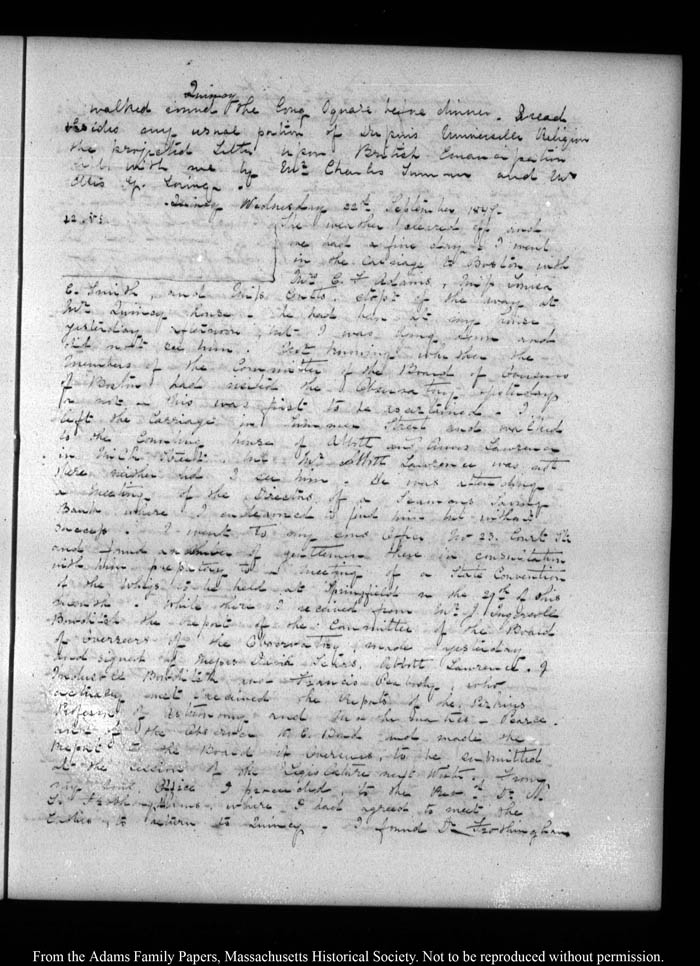 Quincy
walked round the long Square before dinner. Read
besides my usual portion of Dupuis Universelle Religion
the projected Letter upon British Emancipation
left with me by Mr. Charles Sumner and Mr.
Ellis G. Loring.
Quincy Wednesday 22d. September
22. V:
The weather cleared off and
we had a fine day. I went
in the carriage to Boston with
Mrs. C. F. Adams, Miss Louisa
C. Smith, and Miss Cutts. Stopt by the way at
Mr. Quincy's house. He had been at my house
yesterday afternoon, but I was lying down and
did not see him. Not knowing whether the
members of the Committee of the Board of Overseers
of Boston had visited the Observatory yesterday
or not this was first to be ascertained. I
left the Carriage in Summer Street and walked
to the Counting house of Abbott and Amos Lawrence
in Milk Street but Mr. Abbott Lawrence was not
there neither did I see him. He was attending
a meeting of the Directors of a Seamans Saving
Bank where I endeavoured to find him but without
success. I went to my sons Office No 23. Court St.
and found a number of gentlemen there in consultation
with him preparatory to a meeting of a State Convention
of the Whigs to be held at Springfield on the 29th of this
month. While there I received from Mr. J. Ingersoll
Bowditch the report of the Committee of the Board
of Overseers of the Observatory made yesterday
and signed by Messrs David Sears, Abbott Lawrence. J
Ingersoll Bowditch and Francis Peabody, who
actually met received the reports of the Perkins
Professor of Astronomy and Mathematics - Pearce.
and of the Observer W. C. Bond and made the
report to the Board of Overseers, to be submitted
at the session of the Legislature next Winter. From
my sons Office I proceeded to the Revd. Dr. N.
L. Frothinghams, where I had agreed to meet the
Ladies, to return to Quincy. I found Dr Frothingham
From the Adams Family Papers, Massachusetts Historical Society. Not to be reproduced without permission.